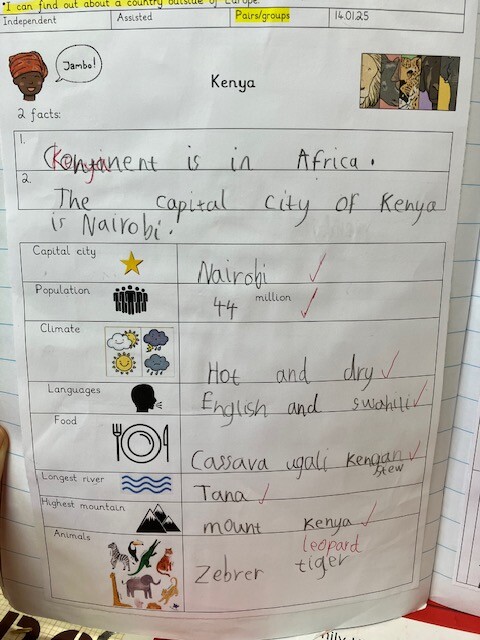 •I can find out about a country outside of Europe.
Independent Assisted Pairs/groups 14.01.25
Jambo!
Kenya
2 facts:
1. Continent is in Africa.
Kenya
2. The capital city of Kenya
is Nairobi.
Capital city Nairobi ✓
Population 44 million ✓
Climate Hot and dry ✓
Languages English and swahili ✓
Food Cassava ugali Kengan ✓
stew
Longest river Tana ✓
Highest mountain mount Kenya ✓
Animals leopard
Zebrer tiger